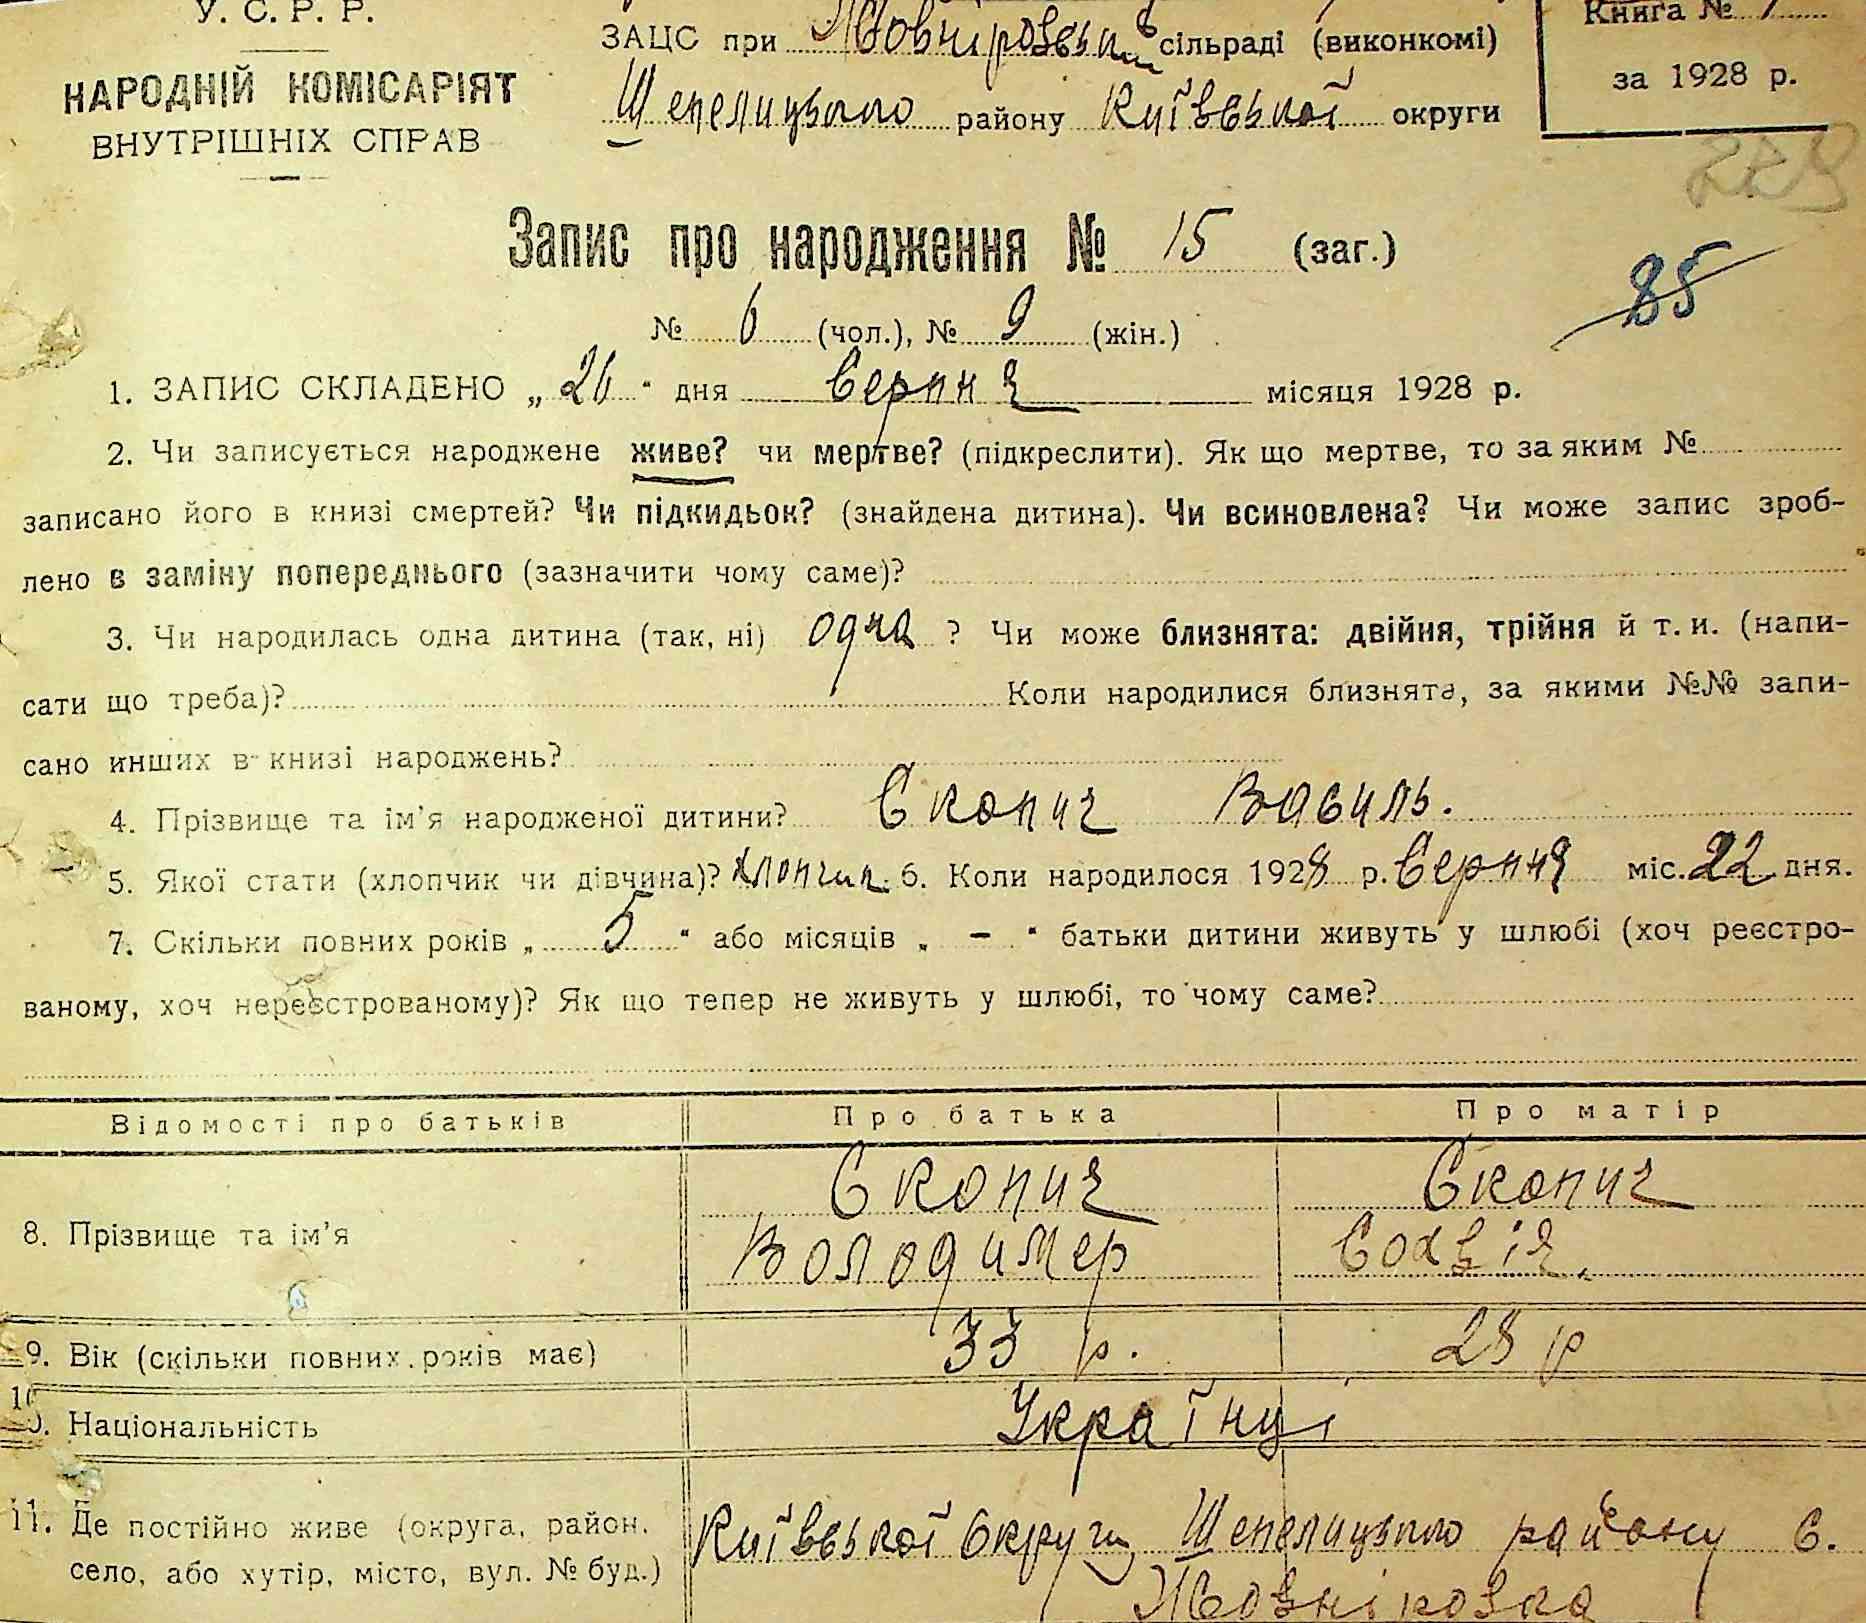 У. С. Р. Р.
НАРОДНІЙ КОМІСАРІЯТ
ВНУТРІШНІХ СПРАВ
ЗАЦС при сільраді (виконкомі)
Шепелицького району Київської округи
Книга №
за 1928 р.
229
85
Запис про народження № 15 (заг.)
№ 6 (чол.), № 9 (жін.)
1. ЗАПИС СКЛАДЕНО „ 26 “ дня Серпня місяця 1928 р.
2. Чи записується народжене живе? чи мертве? (підкреслити). Як що мертве, то за яким №
записано його в книзі смертей? Чи підкидьок? (знайдена дитина). Чи всиновлена? Чи може запис зроб-
лено в заміну попереднього (зазначити чому саме)?
3. Чи народилась одна дитина (так, ні) одна ? Чи може близнята: двійня, трійня й т. и. (напи-
сати що треба)? Коли народилися близнята, за якими №№ запи-
сано инших в книзі народжень?
4. Прізвище та ім'я народженої дитини? Скопич Василь.
5. Якої стати (хлопчик чи дівчина)? хлопчик. 6. Коли народилося 1928 р. Серпня міс. 22 дня.
7. Скільки повних років „ 5 “ або місяців „ – “ батьки дитини живуть у шлюбі (хоч реєстро-
ваному, хоч нереєстрованому)? Як що тепер не живуть у шлюбі, то чому саме?
Відомості про батьків Про батька Про матір
8. Прізвище та ім'я Скопич Володимер Скопич Софія.
9. Вік (скільки повних років має) 33 р. 28 р
10. Національність Українці
11. Де постійно живе (округа, район, село, або хутір, місто, вул. № буд.) Київської Округи Шепелицького району С.